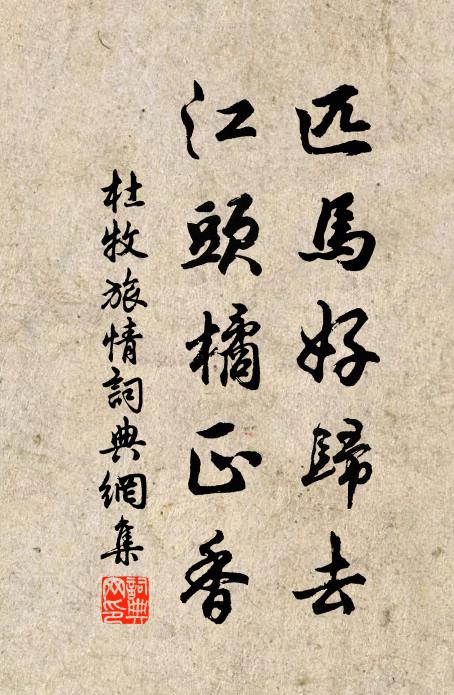 匹馬好歸去
江頭橘正香
杜牧旅情詞典網集
詞典
网印